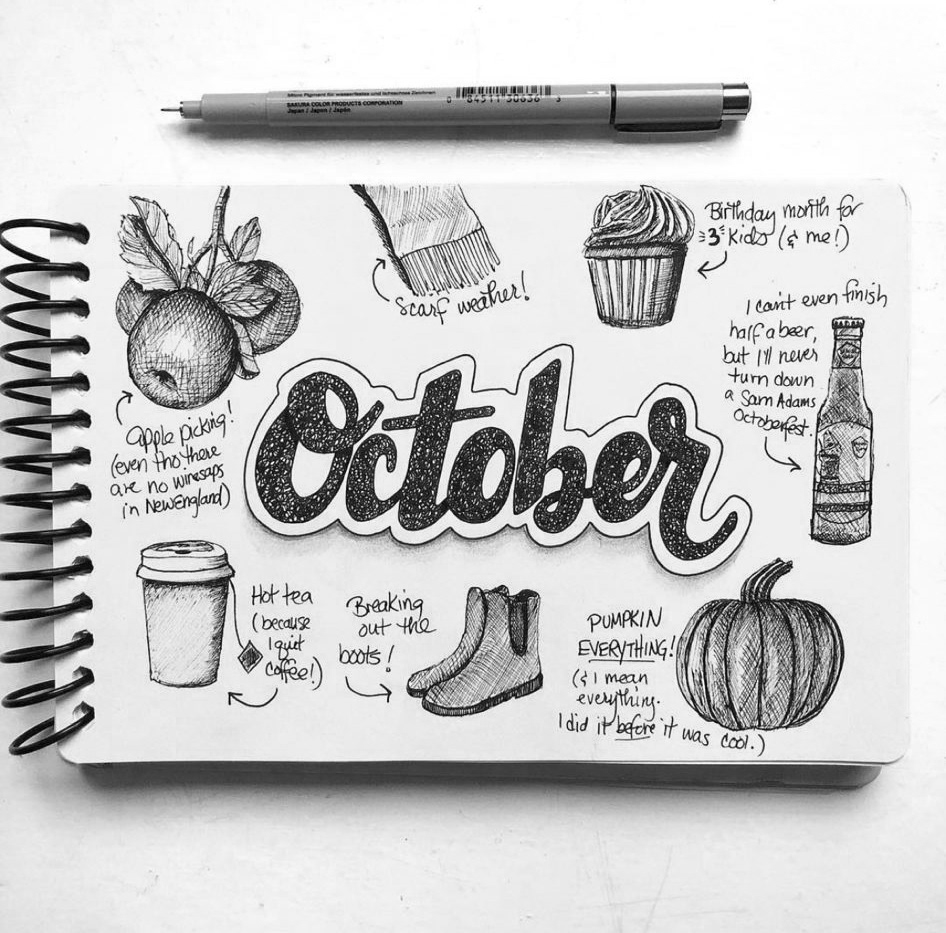 Micro Pigment für wasserfestes und lichtechtes Zeichnen
SAKURA COLOR PRODUCTS CORPORATION
Japan / Japon / Japón
0 84511 30636 3
Scarf weather!
Birthday month for
3 Kids (& me!)
I can't even finish
half a beer,
but I'll never
turn down
a Sam Adams
Octoberfest.
October
apple picking!
(even tho there
are no winesaps
in New England)
Hot tea
(because
I quit
coffee!)
Breaking
out the
boots!
PUMPKIN
EVERYTHING!
(& I mean
everything.
I did it before it was cool.)